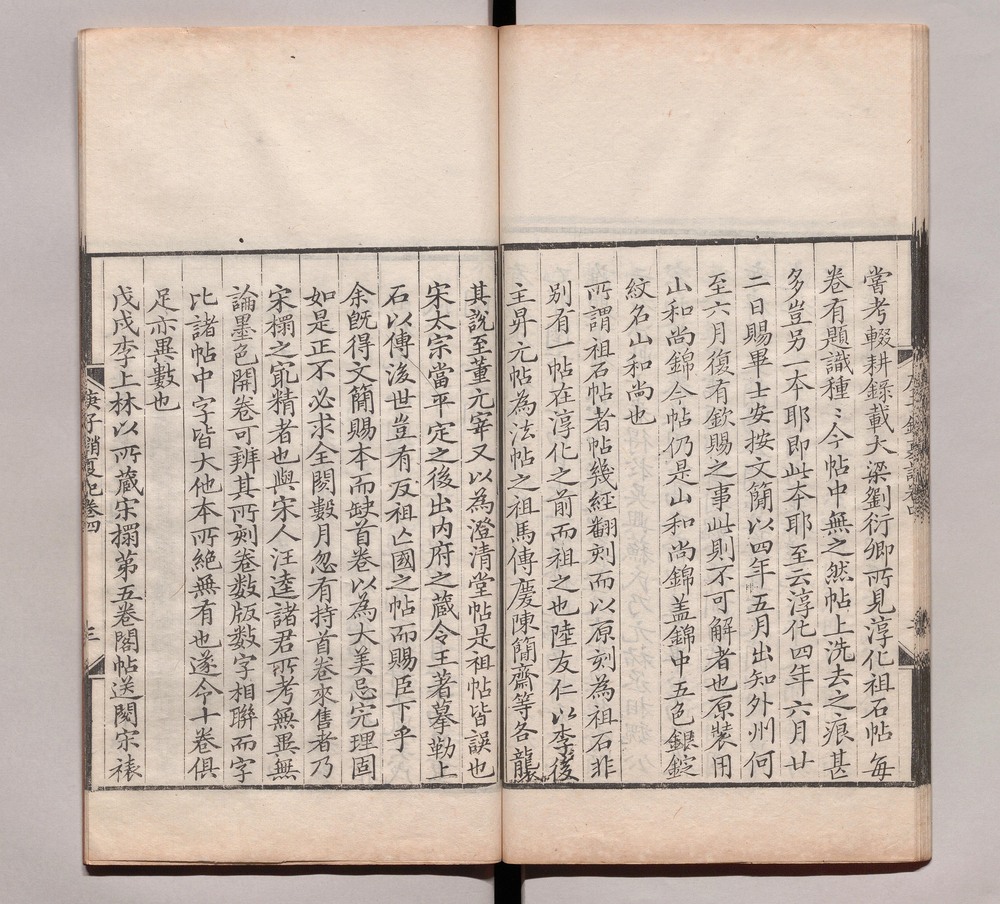 嘗考輟耕錄載大梁劉衍卿所見淳化祖石帖每
卷有題識種〻今帖中無之然帖上洗去之痕甚
多豈另一本耶即此本耶至云淳化四年六月廿
二日賜畢士安按文簡以四年五月出知外州何
至六月復有欽賜之事此則不可解者也原裝用
山和尚錦今帖仍是山和尚錦盖錦中五色銀錠
紋名山和尚也
所謂祖石帖者帖幾經翻刻而以原刻為祖石非
別有一帖在淳化之前而祖之也陸友仁以李後
主昇元帖為法帖之祖馬傳慶陳簡齋等各襲
其說至董元宰又以為澄清堂帖是祖帖皆誤也
宋太宗當平定之後出内府之藏令王著摹勒上
石以傳後世豈有反祖亾國之帖而賜臣下乎
余旣得文簡賜本而缺首卷以為大美忌完理固
如是正不必求全閱數月忽有持首卷來售者乃
宋搨之㝡精者也與宋人汪逵諸君所考無異無
論墨色開卷可辨其所刻卷数版数字相聯而字
比諸帖中字皆大他本所絶無有也遂令十卷俱
足亦異數也
戊戌李上林以所藏宋搨第五卷閣帖送閱宋裱
庚子銷夏記卷四
三